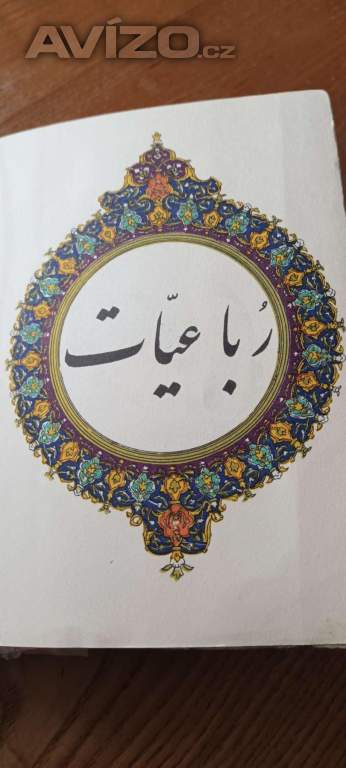 AVÍZO.cz
رُباعیّات